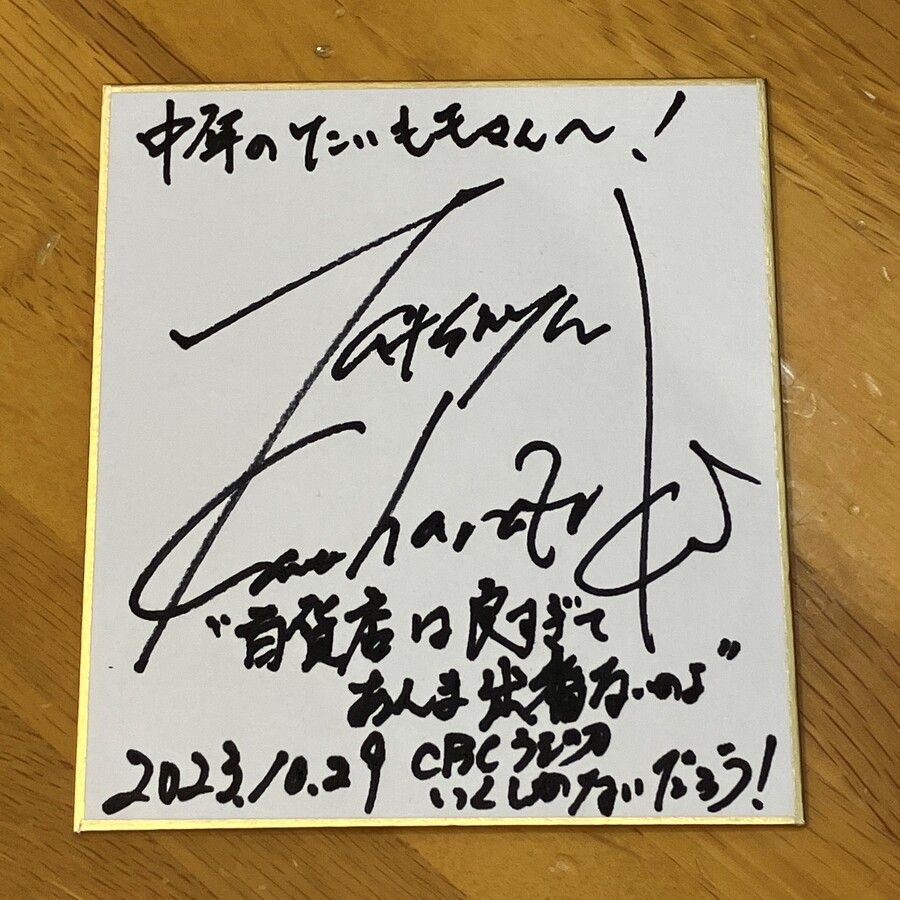 中年の さんへ!
Tatsuya
"百貨店は良すぎて
あんま出番ないのよ"
2023.10.29 CBCラジオ
いくしかないだろう!